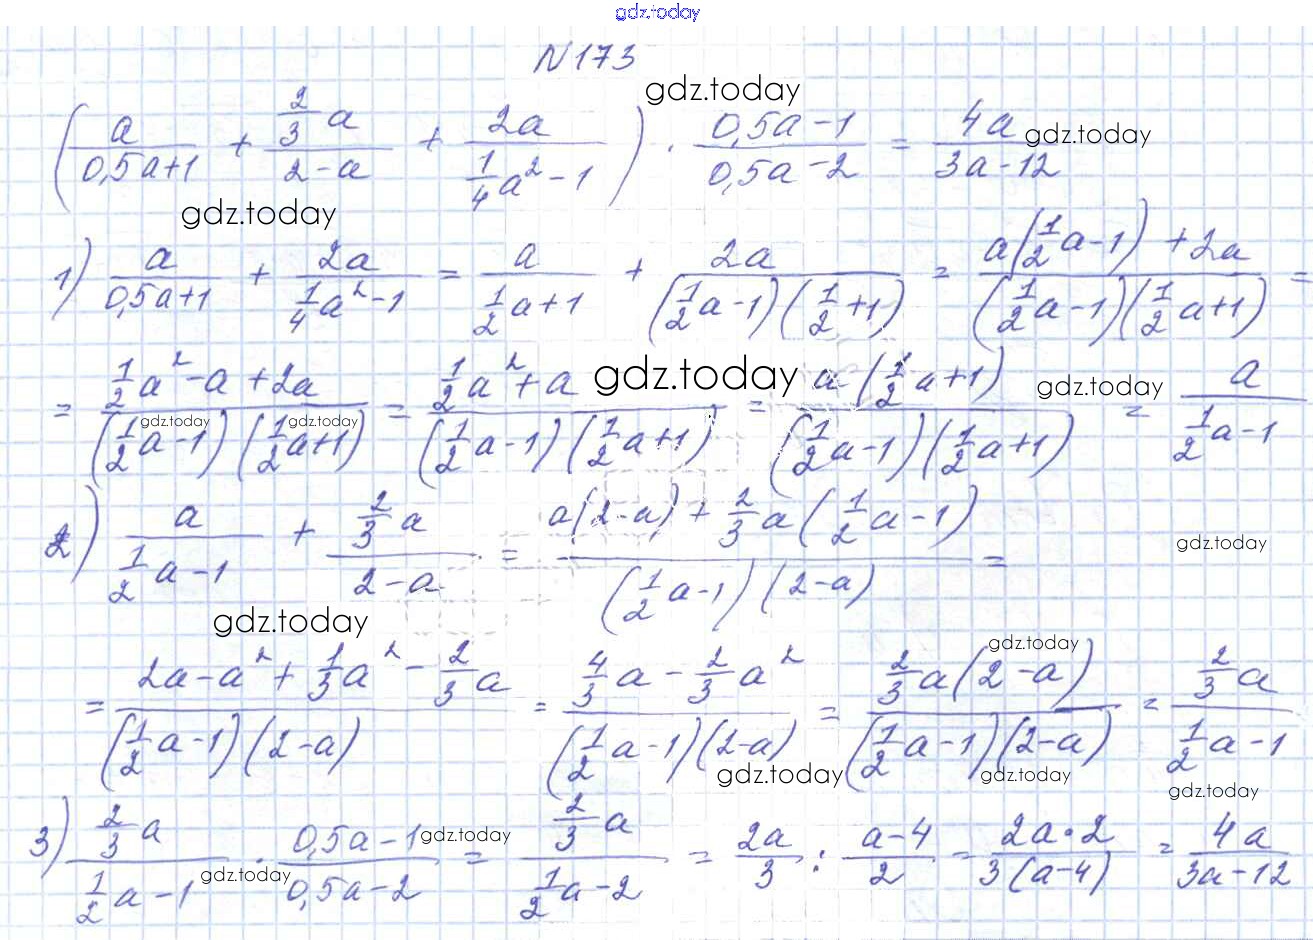 gdz.today
N 173
gdz.today
(a/(0,5a+1) + (2/3 a)/(2-a) + 2a/(1/4 a² - 1)) · (0,5a-1)/(0,5a-2) = 4a/(3a-12) gdz.today
gdz.today
1) a/(0,5a+1) + 2a/(1/4 a² - 1) = a/(1/2 a+1) + 2a/((1/2 a-1)(1/2+1)) = (a(1/2 a-1)+2a)/((1/2 a-1)(1/2 a+1)) =
= (1/2 a² - a + 2a)/((1/2 a-1)(1/2 a+1)) = (1/2 a² + a)/((1/2 a-1)(1/2 a+1)) = a(1/2 a+1)/((1/2 a-1)(1/2 a+1)) = a/(1/2 a-1)
gdz.today gdz.today gdz.today gdz.today
2) a/(1/2 a-1) + (2/3 a)/(2-a) = (a(2-a) + 2/3 a(1/2 a-1))/((1/2 a-1)(2-a)) =
gdz.today
gdz.today
gdz.today
= (2a - a² + 1/3 a² - 2/3 a)/((1/2 a-1)(2-a)) = (4/3 a - 2/3 a²)/((1/2 a-1)(2-a)) = 2/3 a(2-a)/((1/2 a-1)(2-a)) = (2/3 a)/(1/2 a-1)
gdz.today gdz.today
gdz.today
3) (2/3 a)/(1/2 a-1) · (0,5a-1)/(0,5a-2) = (2/3 a)/(1/2 a-2) = 2a/3 : (a-4)/2 = 2a·2/(3(a-4)) = 4a/(3a-12)
gdz.today gdz.today